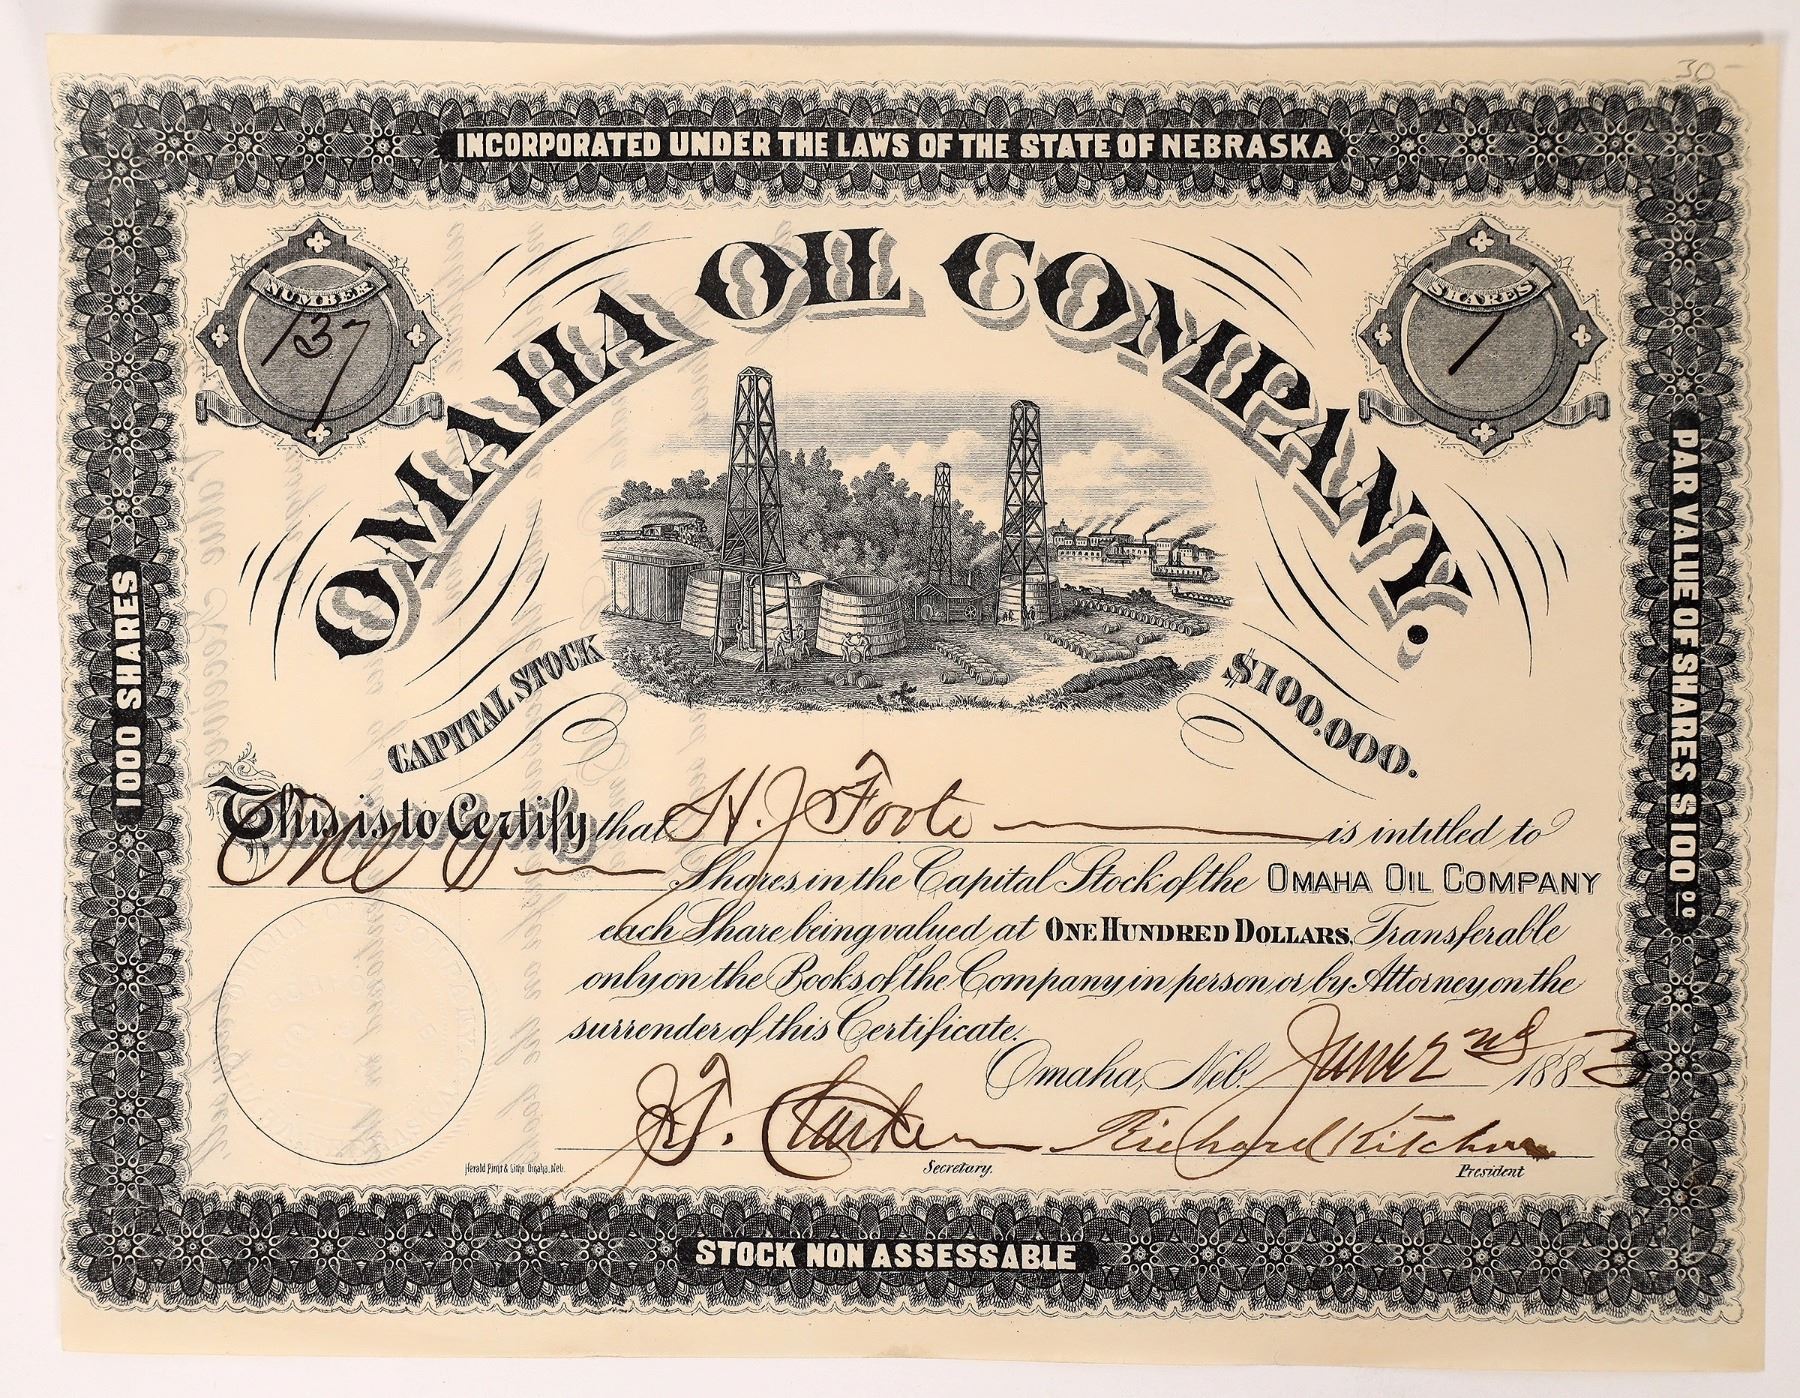 30-
INCORPORATED UNDER THE LAWS OF THE STATE OF NEBRASKA
NUMBER
137
SHARES
1
OMAHA OIL COMPANY.
CAPITAL STOCK
$100.000.
1000 SHARES
PAR VALUE OF SHARES $100 00
This is to Certify that H. J Foote is intitled to
One Shares in the Capital Stock of the OMAHA OIL COMPANY
each Share being valued at ONE HUNDRED DOLLARS, Transferable
only on the Books of the Company in person or by Attorney on the
surrender of this Certificate.
Omaha, Neb. June 2nd 1883
Clarke Richard Kitchen
Herald Print & Litho Omaha, Neb.
Secretary.
President
STOCK NON ASSESSABLE